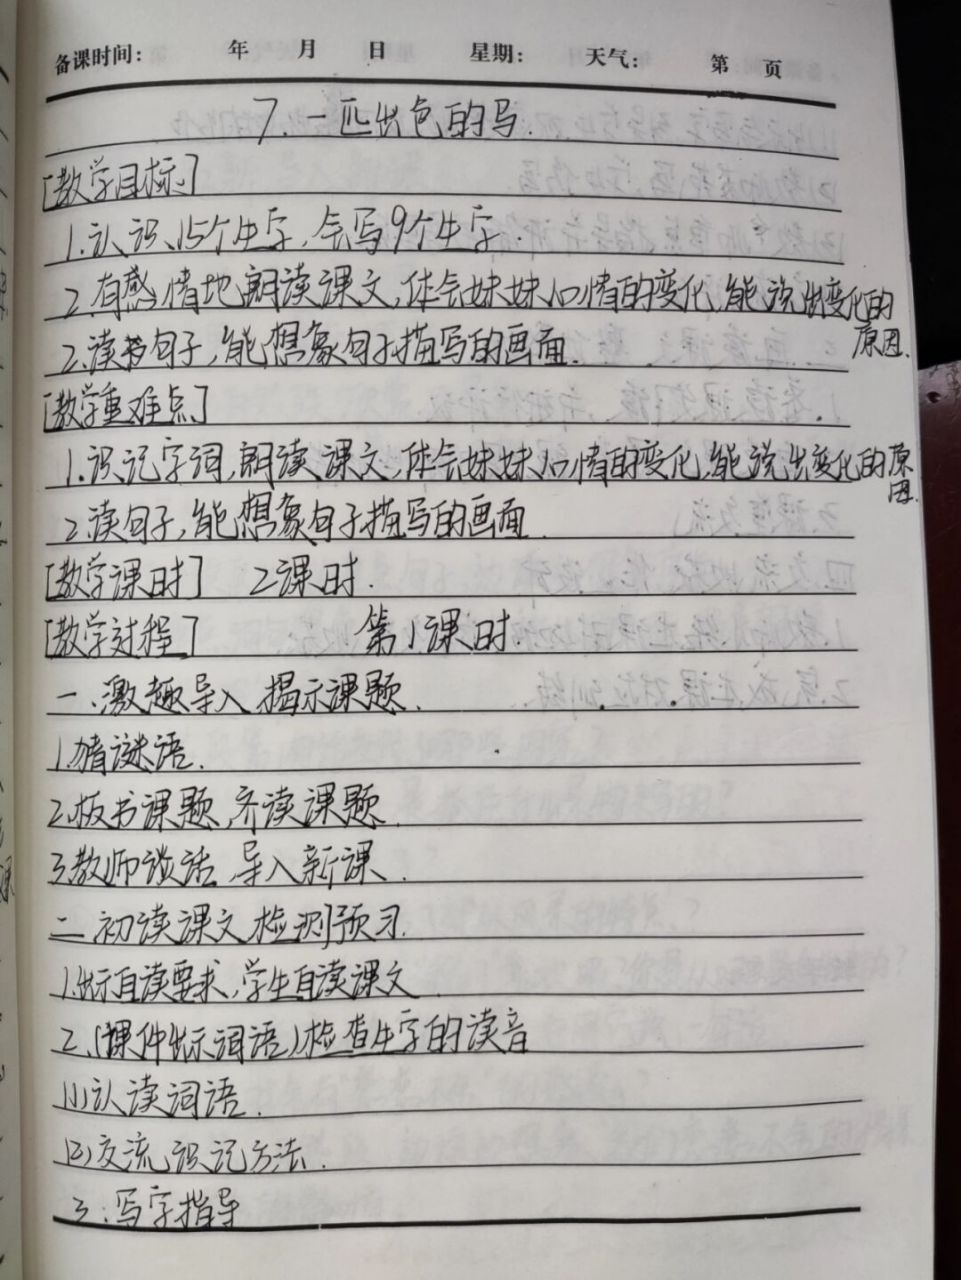 备课时间: 年 月 日 星期: 天气: 第 页
7.一匹出色的马.
[教学目标]
1.认识15个生字,会写9个生字.
2.有感情地朗读课文,体会妹妹心情的变化,能说出变化的
原因.
2.读书句子,能想象句子描写的画面.
[教学重难点]
1.识记字词,朗读课文,体会妹妹心情的变化,能说出变化的原
因.
2.读句子,能想象句子描写的画面
[教学课时] 2课时.
[教学过程] 第1课时.
一.激趣导入 揭示课题.
1.猜谜语.
2.板书课题,齐读课题.
3.教师谈话,导入新课.
二 初读课文 检测预习.
1.出示自读要求,学生自读课文.
2.(课件出示词语)检查生字的读音
(1)认读词语.
(2)交流识记方法.
3.写字指导